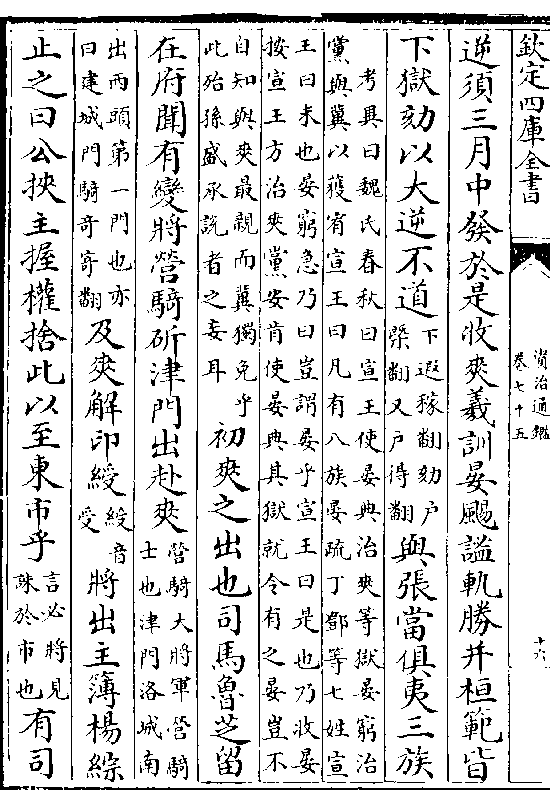 欽定四庫全書
資治通鑑
卷七十五
十六
逆須三月中發於是收爽羲訓晏颺謐軌勝并桓範皆
下獄劾以大逆不道下遐稼翻劾户槩翻又户得翻與張當俱夷三族
考異曰魏氏春秋曰宣王使晏典治爽等獄晏窮治
黨與冀以獲宥宣王曰凡有八族晏疏丁鄧等七姓宣
王曰未也晏窮急乃曰豈謂晏乎宣王曰是也乃收晏
按宣王方治爽黨安肯使晏典其獄就令有之晏豈不
自知與爽最親而冀獨免乎
此殆孫盛承說者之妄耳
初爽之出也司馬魯芝留
在府聞有變將營騎斫津門出赴爽營騎大將軍營騎士也津門洛城南
出西頭第一門也亦曰建城門騎奇寄翻及爽解印綬綬音受將出主簿楊綜
止之曰公挾主握權捨此以至東市乎言必將見誅於市也有司